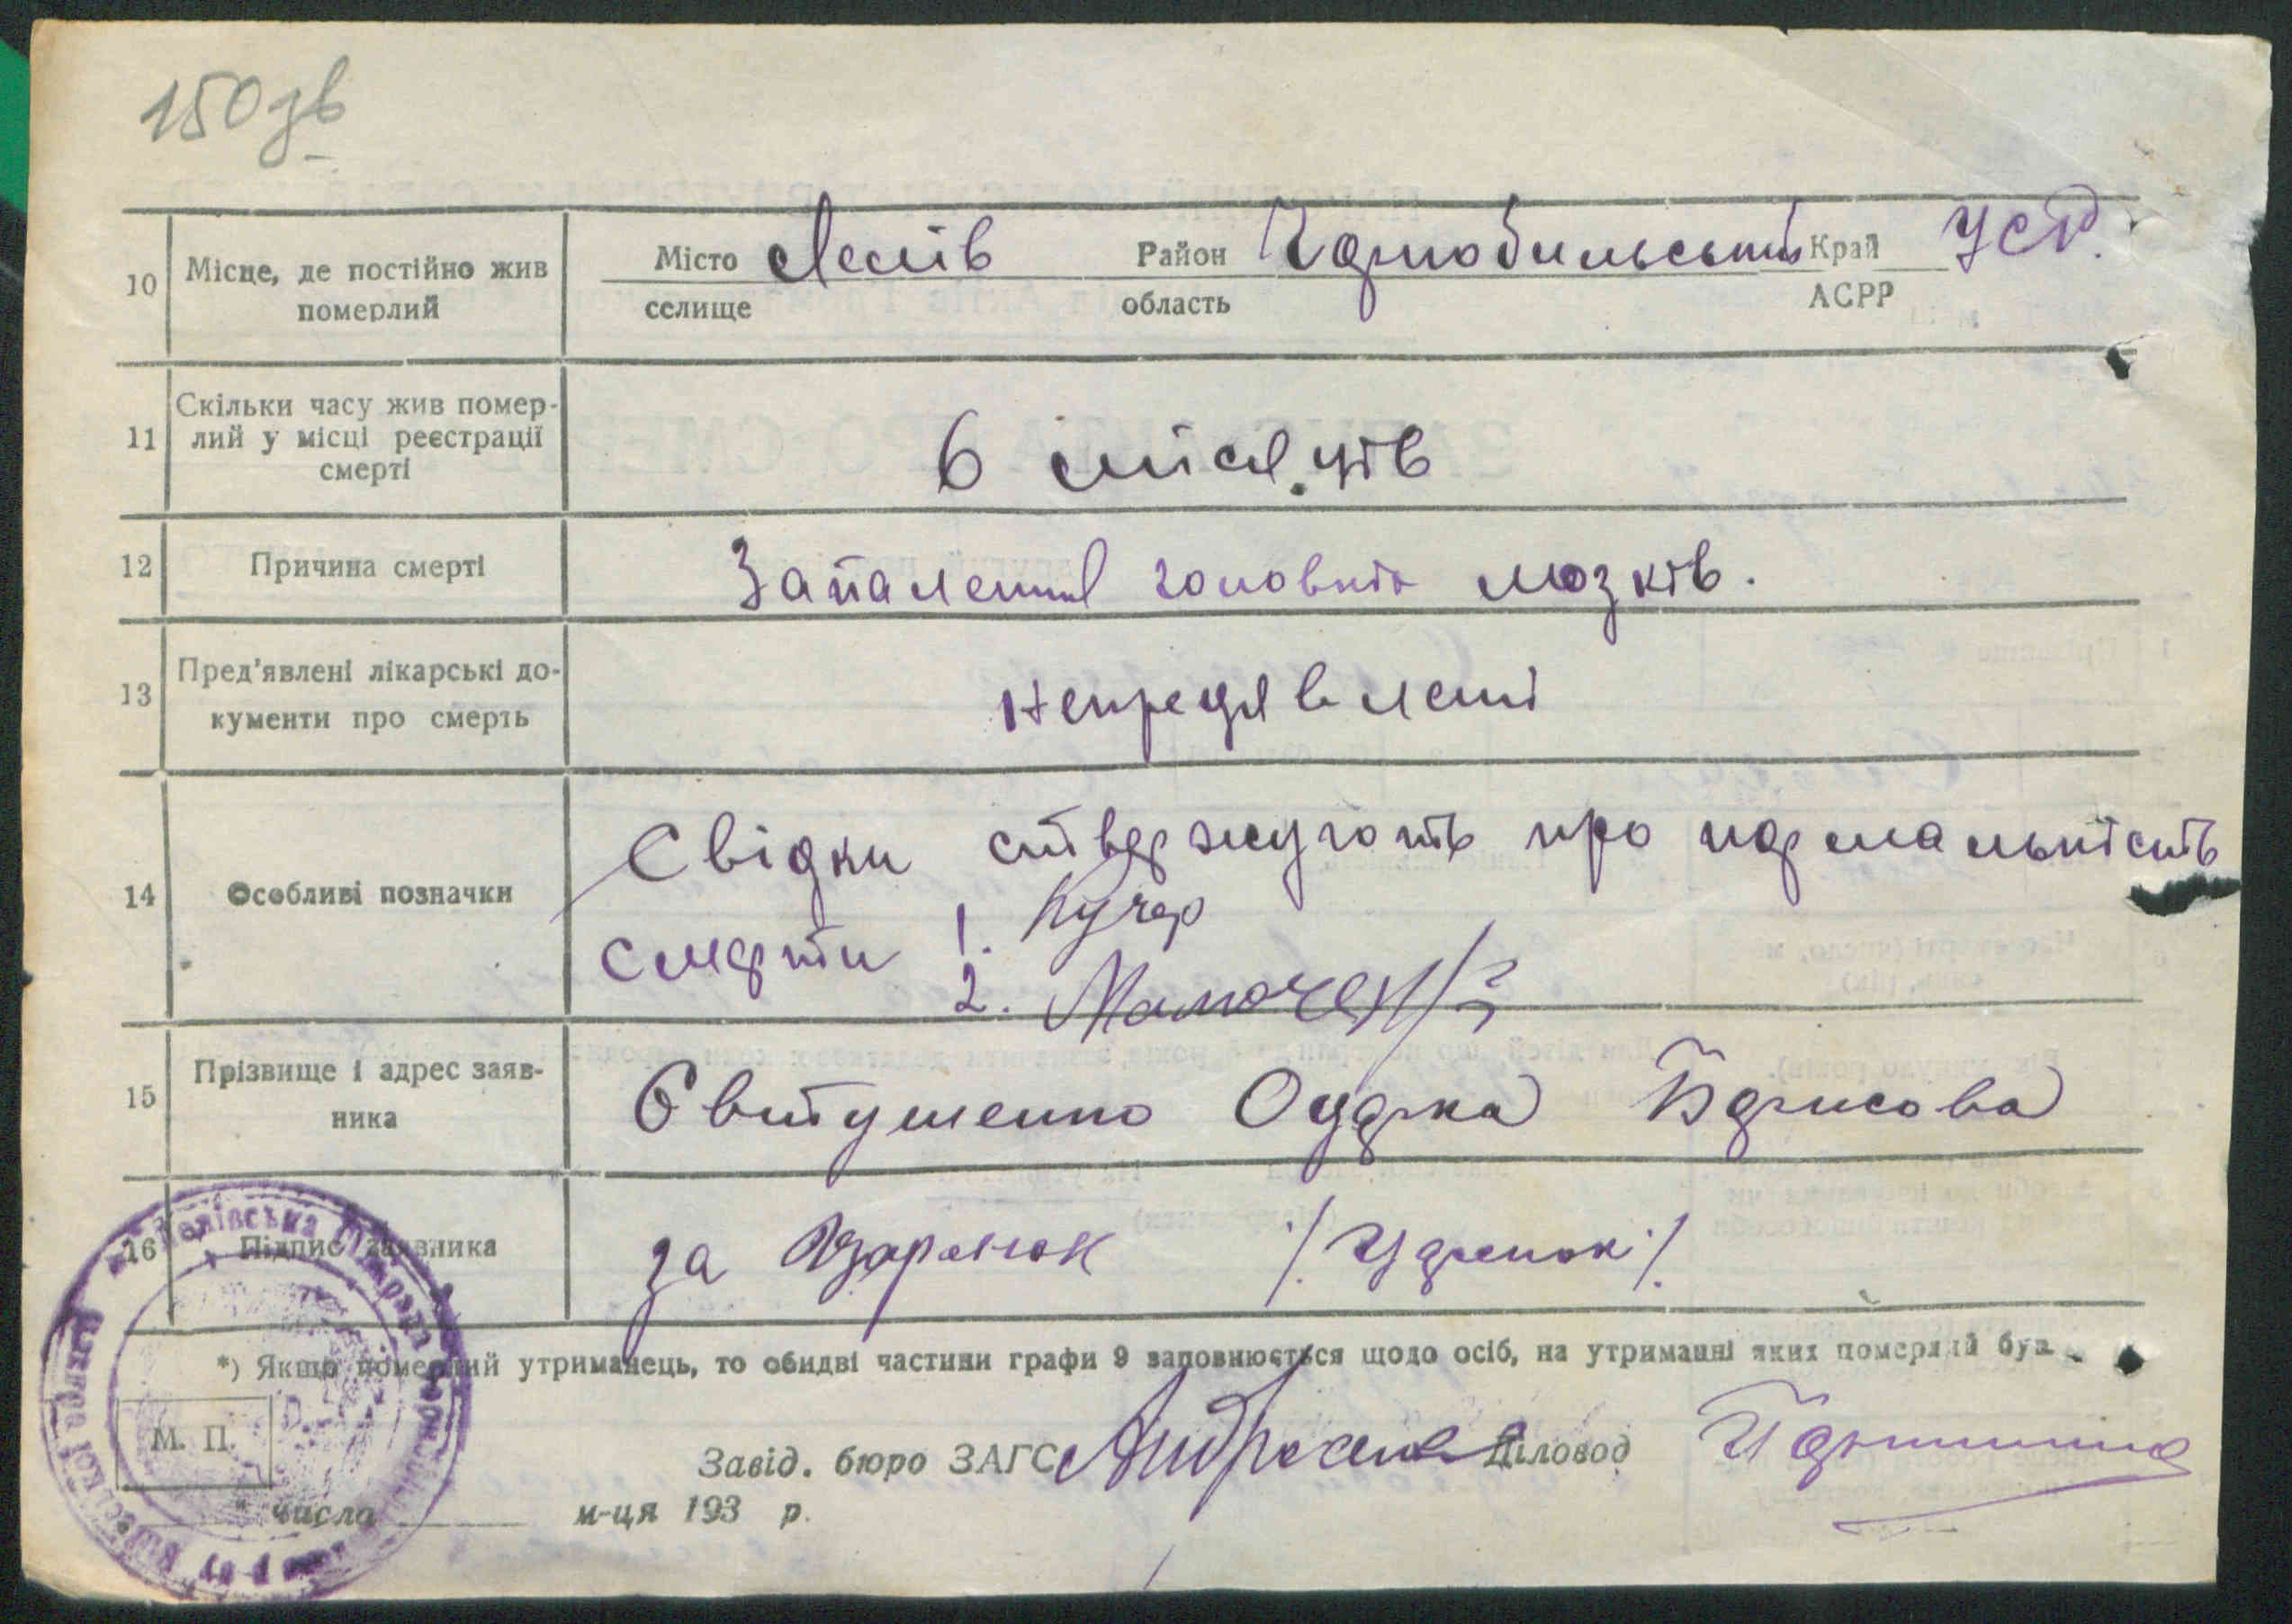 150 зв
10 Місце, де постійно жив померлий
Місто Лелів Район Чорнобильський Край УСРР.
селище область АСРР
11 Скільки часу жив помер-
лий у місці реєстрації
смерті
6 місяців
12 Причина смерті
Запалення головних мозків.
13 Пред'явлені лікарські до-
кументи про смерть
непредявлені
14 Особливі позначки
Свідки ствержують про нормальність
смерти 1. Кучер
2.
15 Прізвище і адрес заяв-
ника
Євтушенко Одарка Борисова
16 Підпис заявника
за
*) Якщо померлий утриманець, то обидві частини графи 9 заповнюється щодо осіб, на утриманні яких померлий був.
М. П.
Завід. бюро ЗАГС Діловод
" числа м-ця 193 р.